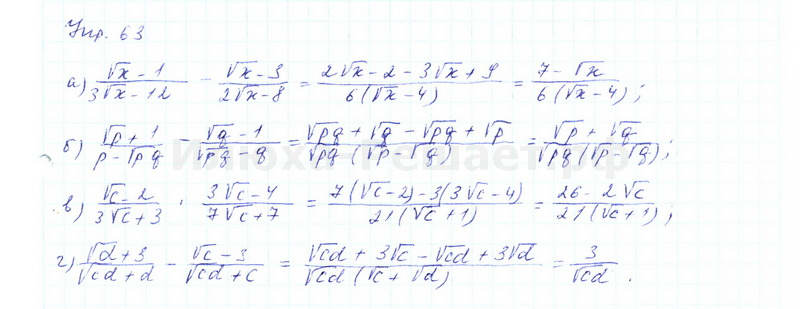 Упр. 63
а) (√x - 1)/(3√x - 12) - (√x - 3)/(2√x - 8) = (2√x - 2 - 3√x + 9)/(6(√x - 4)) = (7 - √x)/(6(√x - 4));
б) (√p + 1)/(p - √pq) - (√q - 1)/(√pq - q) = (√pq + √q - √pq + √p)/(√pq(√p - √q)) = (√p + √q)/(√pq(√p - √q));
в) (√c - 2)/(3√c + 3) - (3√c - 4)/(7√c + 7) = (7(√c - 2) - 3(3√c - 4))/(21(√c + 1)) = (26 - 2√c)/(21(√c + 1));
г) (√d + 3)/(√cd + d) - (√c - 3)/(√cd + c) = (√cd + 3√c - √cd + 3√d)/(√cd(√c + √d)) = 3/√cd.